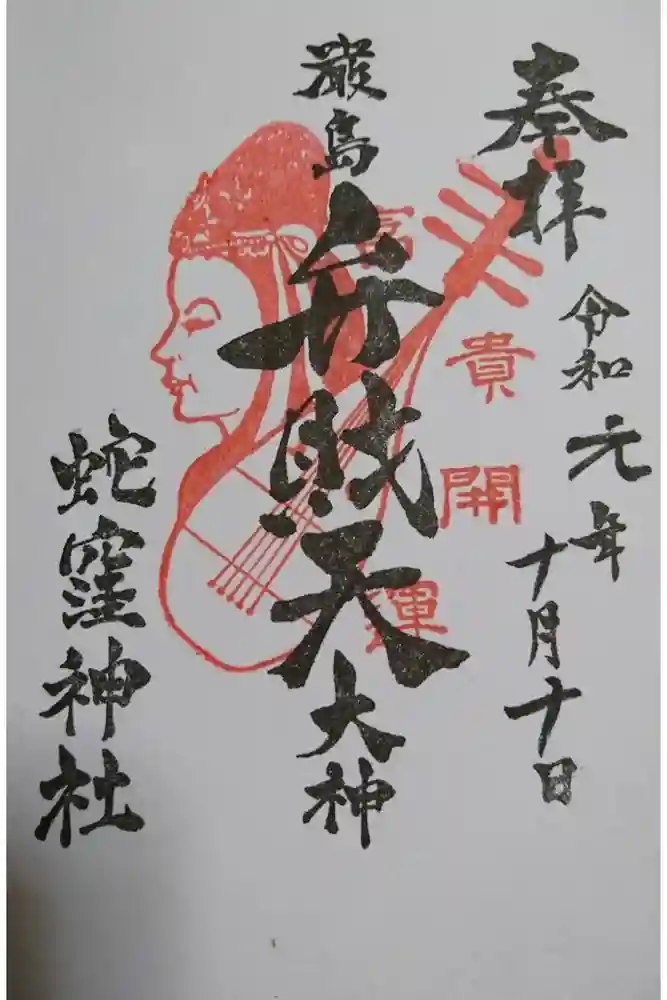 奉拝
令和元年十月十日
富貴開運
厳島弁財天大神
蛇窪神社